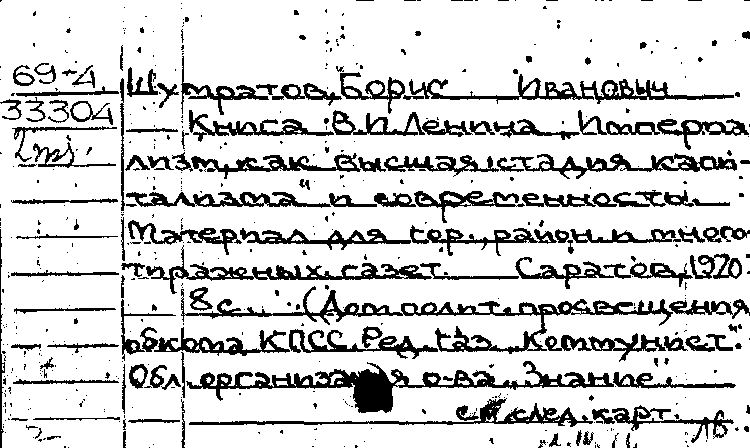 69-4
33304
Шумратов, Борис Иванович.
Книга В.И.Ленина „Империа-
лизм, как высшая стадия капи-
тализма" и современность.
Материал для гор., район. и много-
тиражных газет. Саратов, 1970.
8с. (Дом полит. просвещения
обкома КПСС. Ред. газ. „Коммунист".
Обл. организация о-ва „Знание".
см. след. карт.